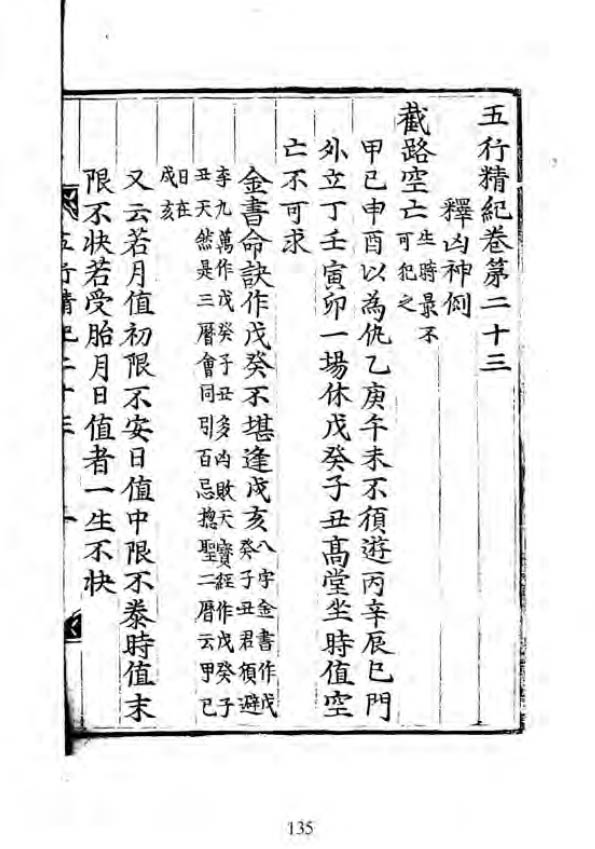 五行精紀卷第二十三
釋凶神例
截路空亡
生時最不
可犯之
甲已申酉以為仇乙庚午未不須遊丙辛辰巳門
外立丁壬寅卯一場休戊癸子丑高堂坐時值空
亡不可求
金書命訣作戊癸不堪逢戌亥
八字金書作戊
癸子丑君須避
李九萬作戊癸子丑多凶敗天寳經作戊癸子
丑天然是三曆會同引百忌揔聖二曆云甲已
日在
戌亥
又云若月值初限不安日值中限不泰時值末
限不快若受胎月日值者一生不快
五行精紀二十三
一
135